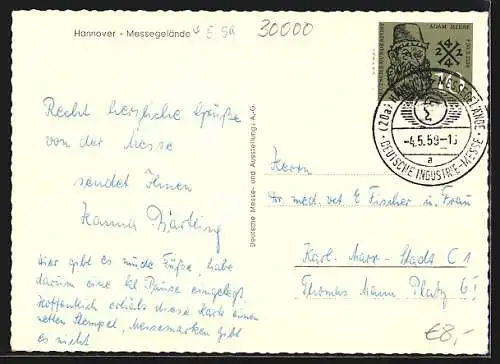 Hannover - Messegelände
4 E. 59
30000
ADAM RIESE
DEUTSCHE BUNDESPOST
10
(20a) HANNOVER MESSEGELÄNDE
-4.5.59-13
a
DEUTSCHE INDUSTRIE-MESSE
Recht herzliche Grüße
von der Messe
sendet Ihnen
Hanna
Hier gibt es müde Füße, habe
darum eine kl Pause eingelegt.
Hoffentlich erhält diese Karte einen
netten Stempel, Messemarken gibt
es nicht
Deutsche Messe- und Ausstellungs-A.G.
Herrn
Dr. med. vet. E. Fischer und Frau
Karl-Marx-Stadt C 1
Thomas Mann Platz 6
€8,-